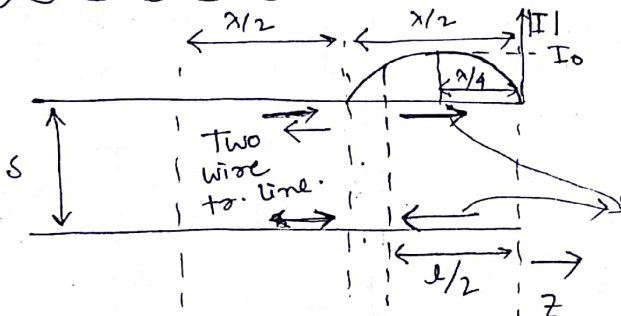 λ/2 λ/2 |I|
I₀
λ/4
S
Two
wire
tr. line.
l/2
Z